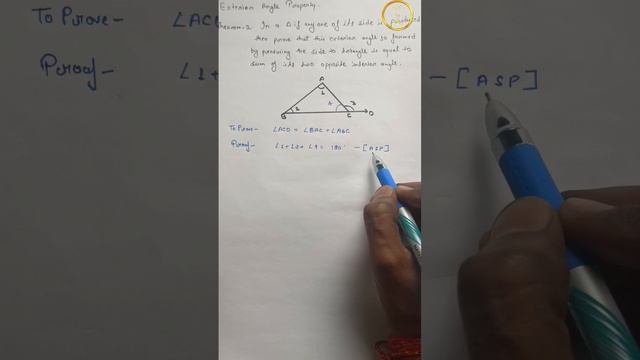 Exterior Angle Property.
Theorem-2 In a Δ if any one of its side is produced
then prove that this exterior angle so formed
by producing the side to triangle is equal to
sum of its two opposite interior angle.
A
1
2
4
3
B
C
D
To Prove- ∠ACD = ∠BAC + ∠ABC
Proof- ∠1+∠2+ ∠4 = 180° -[ASP]